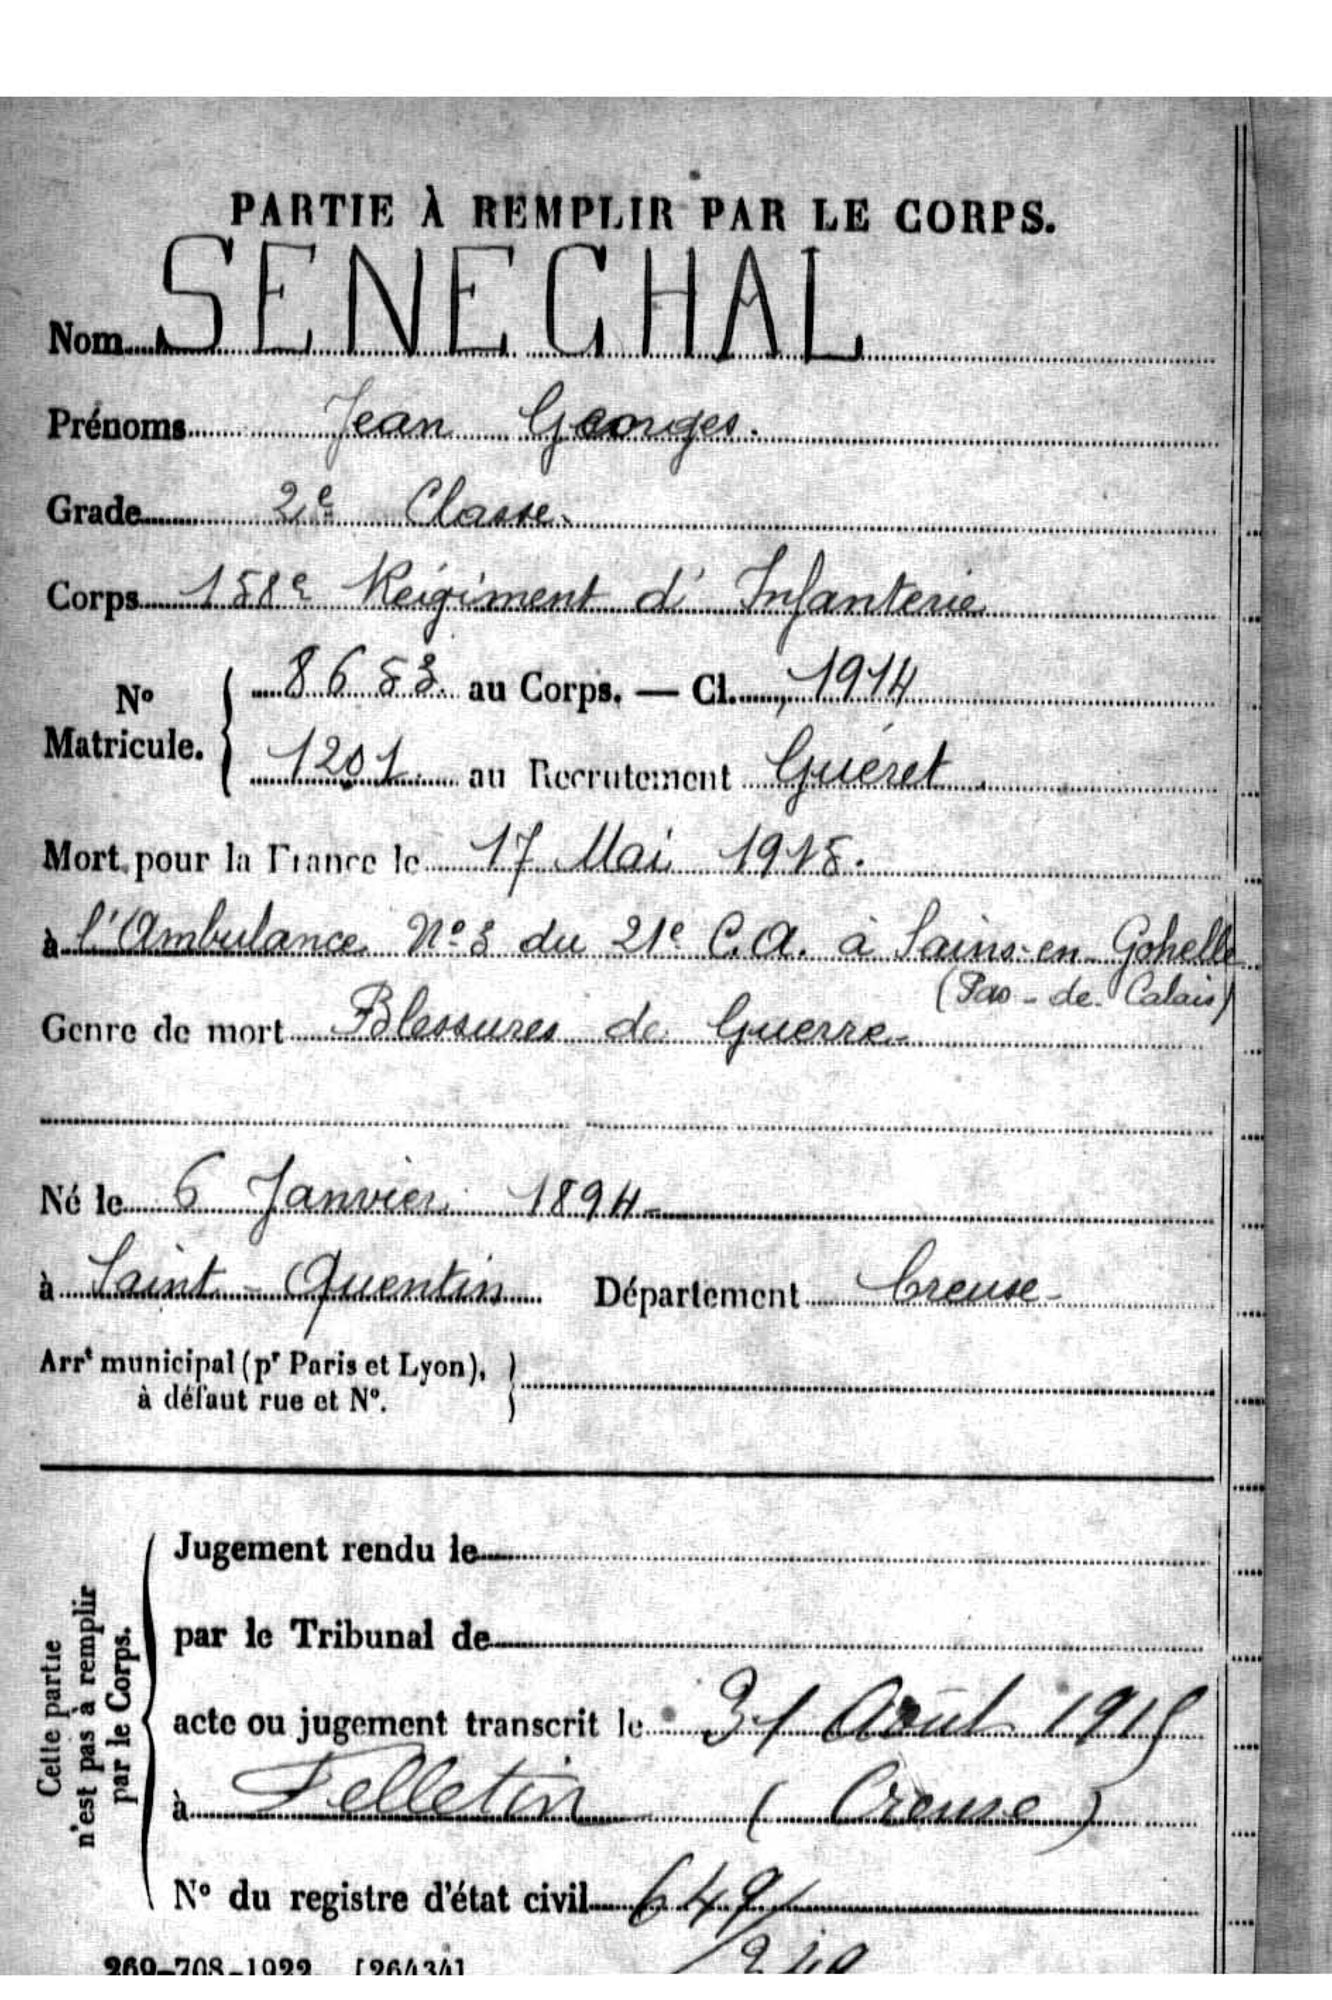 PARTIE À REMPLIR PAR LE CORPS.
Nom SENECHAL
Prénoms Jean Georges.
Grade 2e Classe.
Corps 158e Régiment d'Infanterie
No Matricule. { 8653 au Corps. — Cl. 1914
1201 au Recrutement Guéret
Mort pour la France le 17 Mai 1915.
à l'Ambulance No 3 du 21e C.A. à Sains-en-Gohelle
(Pas-de-Calais)
Genre de mort Blessures de Guerre
Né le 6 Janvier 1894
à Saint-Quentin Département Creuse
Arrt municipal (pr Paris et Lyon), }
à défaut rue et No.
Cette partie
n'est pas à remplir
par le Corps.
Jugement rendu le
par le Tribunal de
acte ou jugement transcrit le 31 Août 1915
à Felletin (Creuse)
No du registre d'état civil 649/
269-708-1922. [26434]